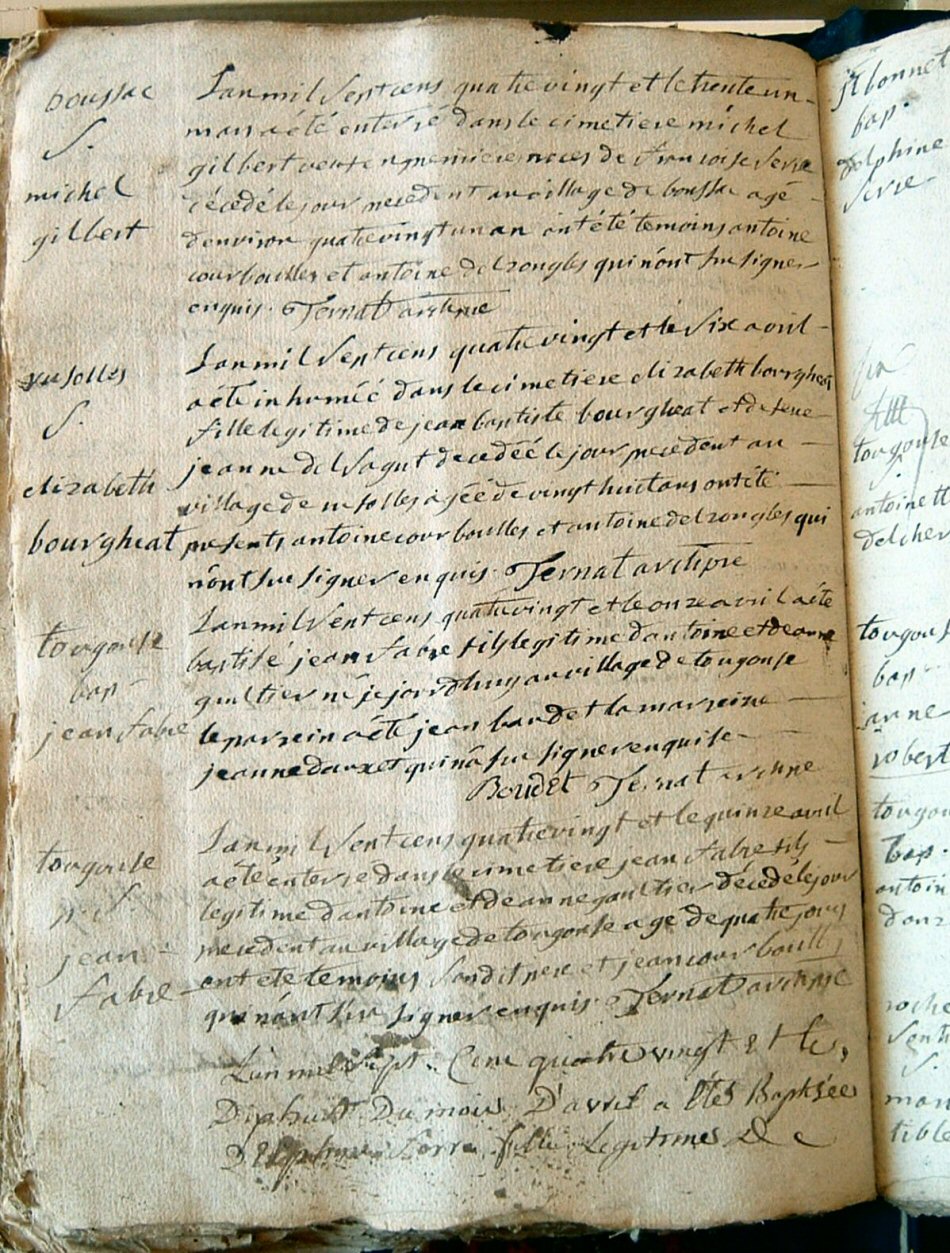 boussac
S.
michel
gilbert
L'an mil sept cens quatre vingt et le trente un
mars a été enterré dans le cimetiere michel
gilbert veuf en premiere noces de francoise serre
décédé le jour precedent au village de boussac agé
d'environ quatre vingt un an ont été temoins antoine
courboulles et antoine delzongles qui n'ont su signer
enquis. Ternat
S.
elizabeth
bourgheat
L'an mil sept cens quatre vingt et le six avril
a été inhuméé dans le cimetiere elizabeth bourgheat
fille legitime de jean baptiste bourgheat et de feue
jeanne delsagut decedéé le jour precedent au
village de agéé de vingt huit ans ont été
presents antoine courboulles et antoine delzongles qui
n'ont su signer enquis. Ternat
tougouse
bap
jean fabre
L'an mil sept cens quatre vingt et le onze avril a été
baptisé jean fabre fils legitime d'antoine et de anne
gaultier né le jour d'huy au village de tougouse
le parrein a été jean baudet la marreine
jeanne dauzet qui n'a su signer enquise
Boudet Ternat
tougouse
p. S.
jean
fabre
L'an mil sept cens quatre vingt et le quinze avril
a été enterre dans le cimetiere jean fabre fils
legitime d'antoine et de anne gaultier décédé le jour
precedent au village de tougouse agé de quatre jours
ont ete temoins sondit pere et jean courboulles
qui n'ont seu signer enquis. Ternat
L'an mil sept Cens quatre vingt Et le
Dixhuit Du mois D'avril a Étés Baptisée
Delphine serre fille Legitimes De
st bonnet
bap.
delphine
serre
tougouse
S.
antoinett
delcher
tougous
bap
janne
robert
tougou
bap.
antoin
S.